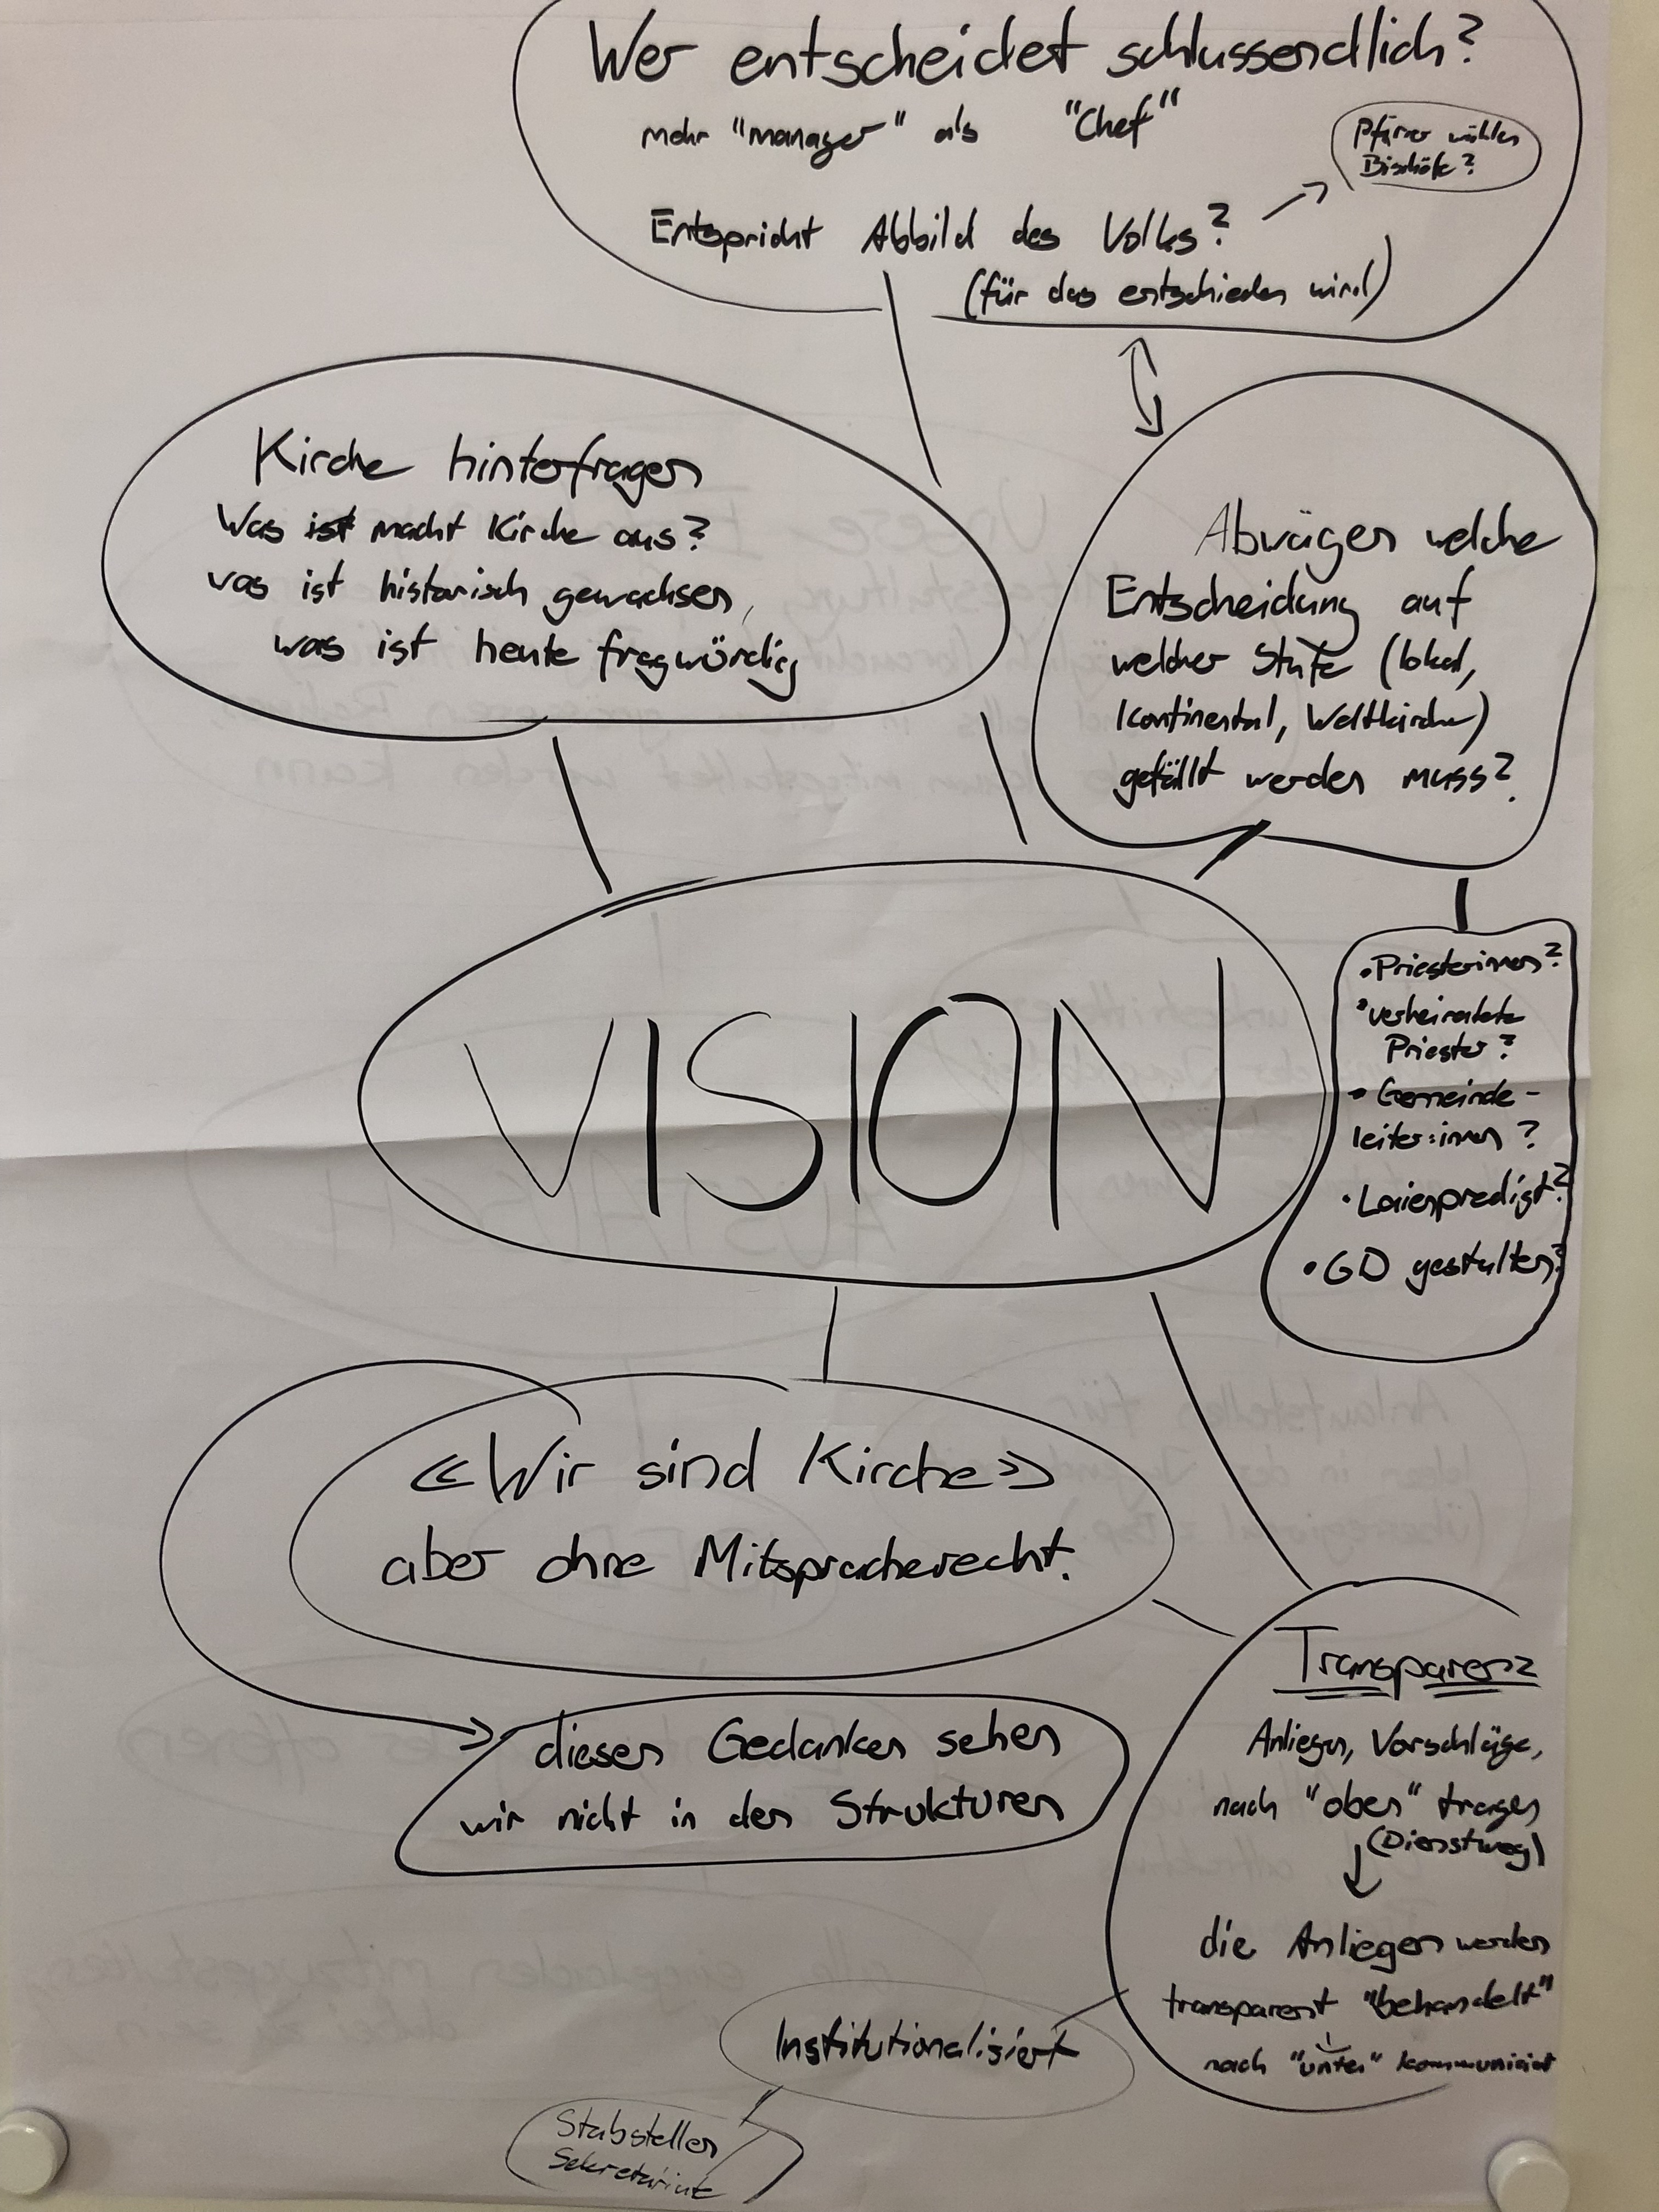 Wer entscheidet schlussendlich?
mehr "manager" als "Chef"
Pfarrer wählen
Bischöfe?
Entspricht Abbild des Volks?
(für das entschieden wird)
Kirche hinterfragen
Was ist macht Kirche aus?
was ist historisch gewachsen,
was ist heute fragwürdig
Abwägen welche
Entscheidung auf
welcher Stufe (lokal,
kontinental, Weltkirche)
gefällt werden muss?
VISION
• Priesterinnen?
• verheiratete
Priester?
• Gemeinde-
leiter:innen?
• Laienpredigt?
• GD gestalten?
«Wir sind Kirche»
aber ohne Mitspracherecht.
diesen Gedanken sehen
wir nicht in den Strukturen
Transparenz
Anliegen, Vorschläge,
nach "oben" tragen
(Dienstweg)
die Anliegen werden
transparent "behandelt"
nach "unten" kommuniziert
Institutionalisiert
Stabstellen
Sekretariat